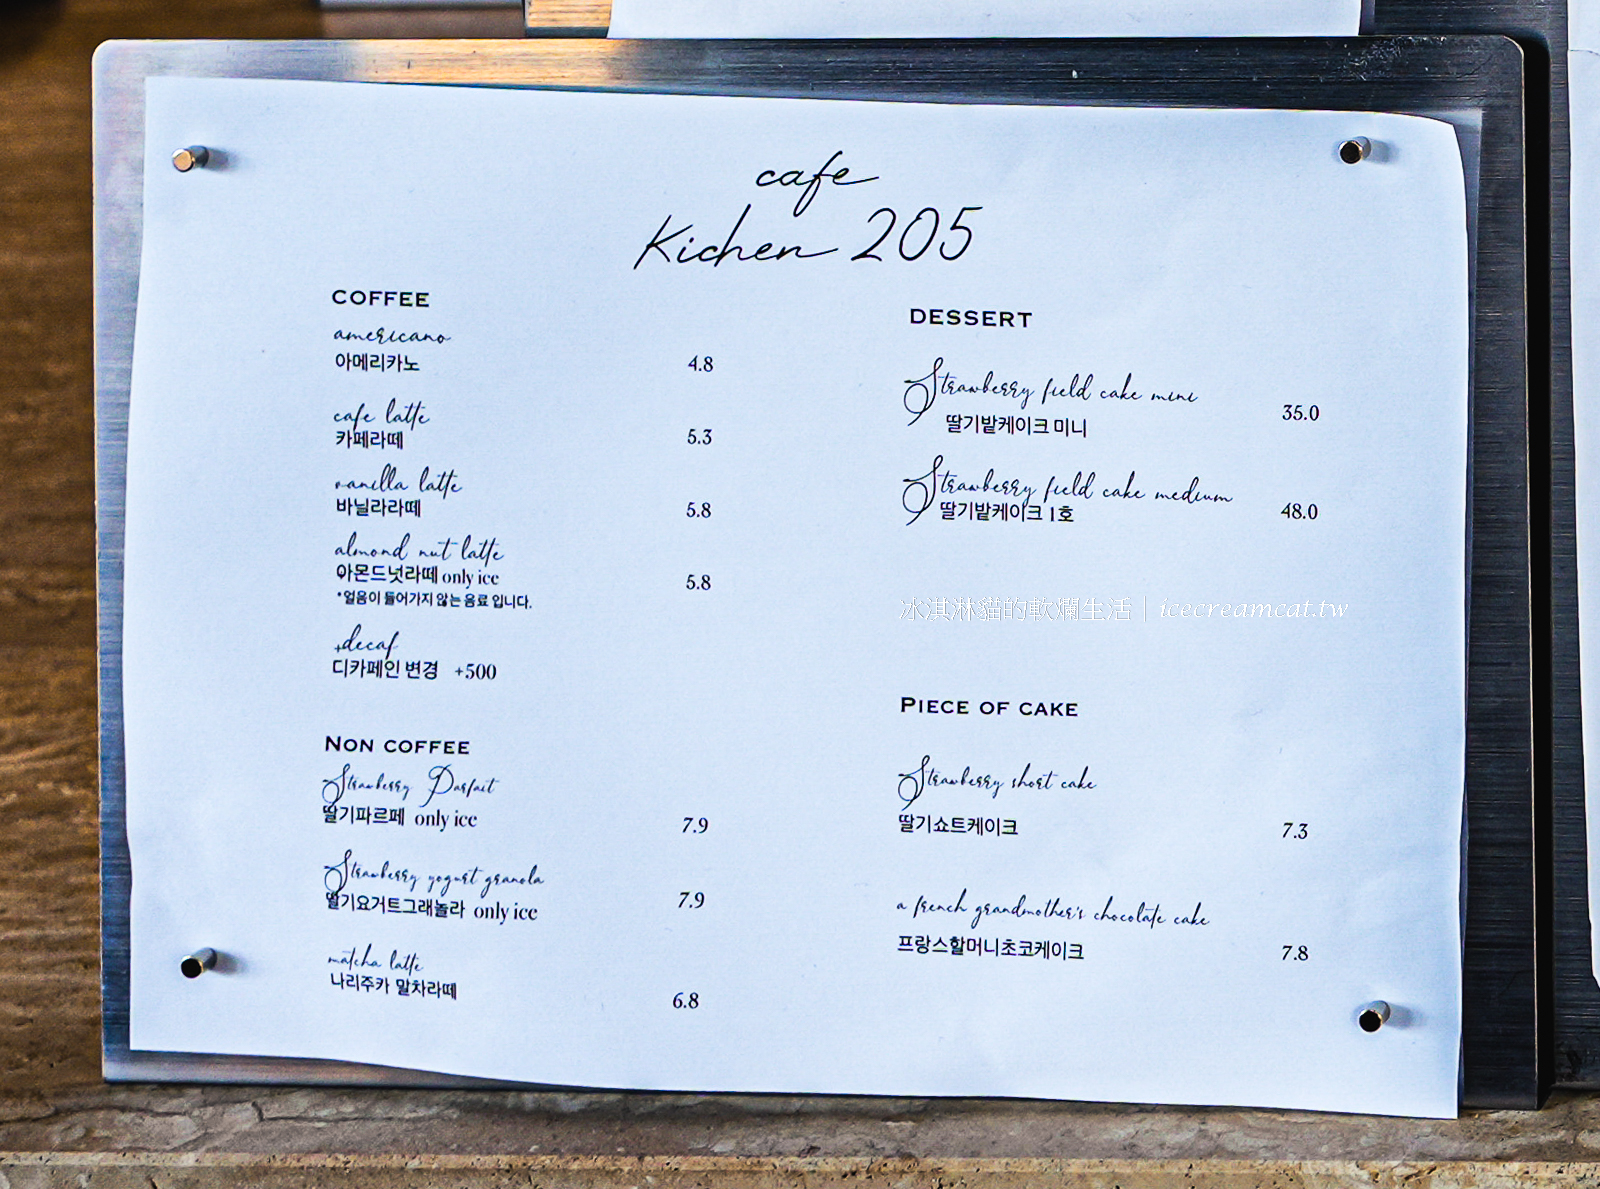 cafe
Kichen 205
COFFEE
americano
아메리카노 4.8
cafe latte
카페라떼 5.3
vanilla latte
바닐라라떼 5.8
almond nut latte
아몬드넛라떼 only ice 5.8
*얼음이 들어가지 않는 음료 입니다.
+decaf
디카페인 변경 +500
NON COFFEE
Strawberry Parfait
딸기파르페 only ice 7.9
Strawberry yogurt granola
딸기요거트그래놀라 only ice 7.9
matcha latte
나리주카 말차라떼 6.8
DESSERT
Strawberry field cake mini
딸기밭케이크 미니 35.0
Strawberry field cake medium
딸기밭케이크 1호 48.0
冰淇淋貓的軟爛生活 | icecreamcat.tw
PIECE OF CAKE
Strawberry short cake
딸기쇼트케이크 7.3
a french grandmother's chocolate cake
프랑스할머니초코케이크 7.8